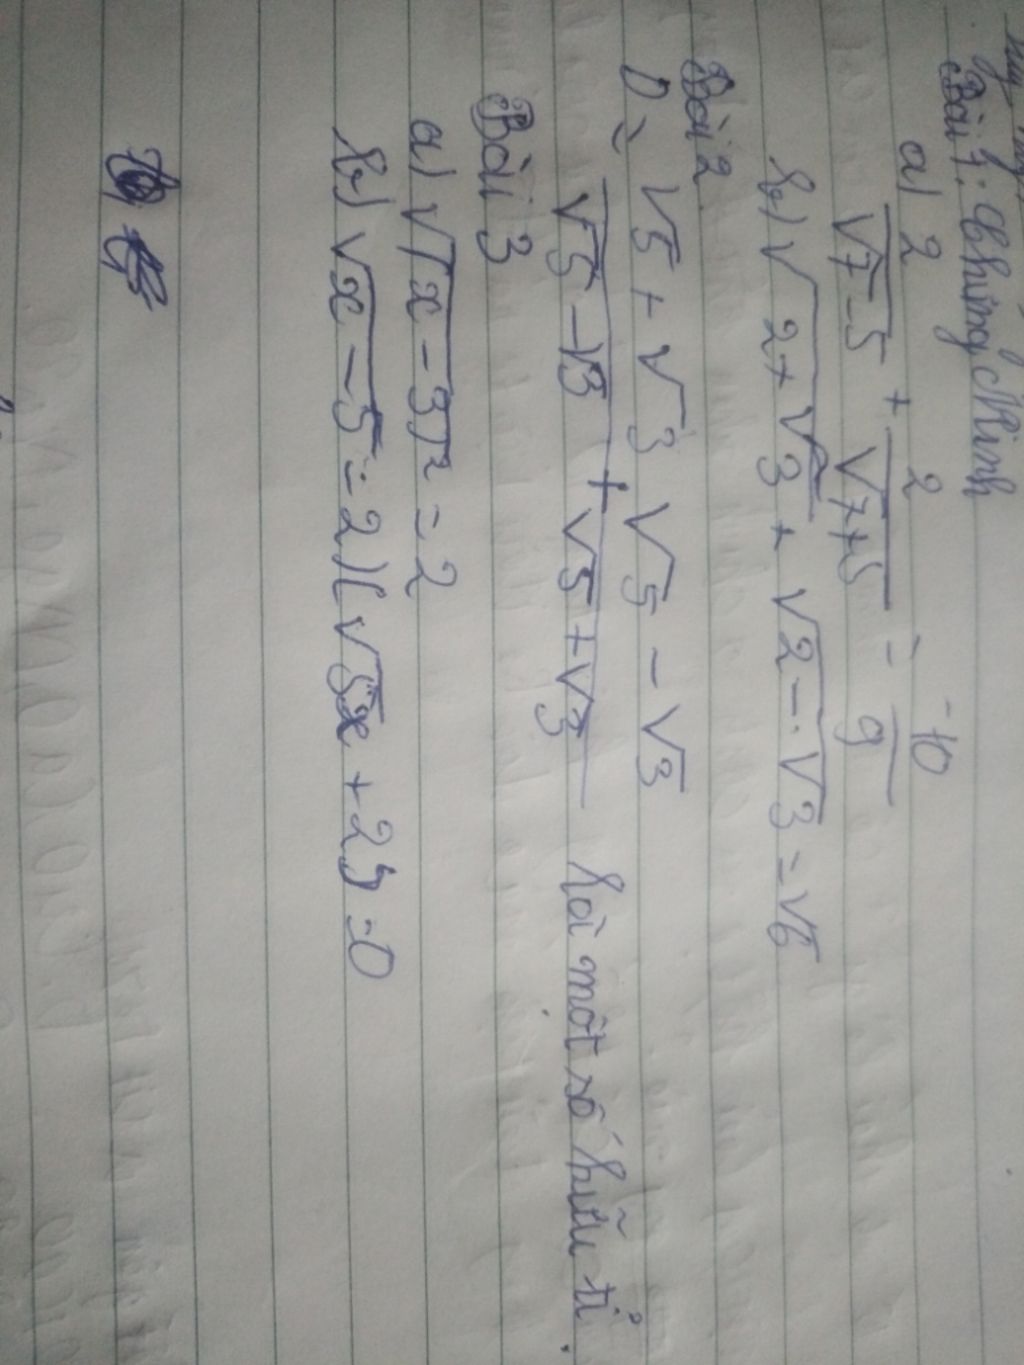 Bài 1: Chứng Minh
a) 2/(√7-5) + 2/(√7+5) = -10/9
b) √(2+√3) + √(2-√3) = √6
Bài 2.
D = (√5+√3)/(√5-√3) + (√5-√3)/(√5+√3) là một số hữu tỉ.
Bài 3
a) √(x-3)² = 2
b) √x-5=2)(√5x+2)=0